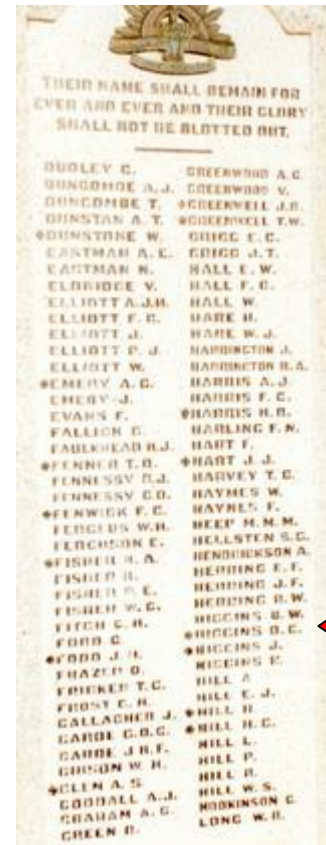 THEIR NAME SHALL REMAIN FOR
EVER AND EVER AND THEIR GLORY
SHALL NOT BE BLOTTED OUT.
DUDLEY C.
DUNCOMBE A.J.
DUNCOMBE T.
DUNSTAN A.T.
DUNSTONE W.
EASTMAN A.E.
EASTMAN N.
ELDRIDGE V.
ELLIOTT A.J.H.
ELLIOTT F.C.
ELLIOTT J.
ELLIOTT P.J.
ELLIOTT W.
EMERY A.G.
EMERY J.
EVANS F.
FALLICK
FAULKHEAD H.J.
FENNER T.
FENNESSY
FENNESSY
FENWICK F.C.
FERGUS W.H.
FERGUSON E.
FISHER
FISHER
FISHER
FISHER W.G.
FITCH
FORD
FORD
FRAZER
FRICKER T.C.
FROST
GALLAGHER J.
GAROE
GAROE
GIBSON W.H.
GLEN A.S.
GOODALL A.J.
GRAHAM A.G.
GREEN
GREENWOOD A.C.
GREENWOOD V.
GREENWELL
GREENWELL T.W.
GRIGG E.C.
GRIGG J.T.
HALL E.W.
HALL F.C.
HALL W.
HARE H.
HARE W.J.
HARRINGTON J.
HARRINGTON
HARRIS A.J.
HARRIS F.C.
HARRIS
HARLING F.N.
HART F.
HART J.J.
HARVEY T.G.
HAYMES W.
HAYNES F.
HEEP M.M.M.
HELLSTEN S.G.
HENDRICKSON A.
HERRING E.F.
HERRING J.F.
HERRING R.W.
HIGGINS
HIGGINS
HIGGINS J.
HIGGINS
HILL A
HILL E.J.
HILL
HILL H.G.
HILL L.
HILL P.
HILL R.
HILL W.S.
HODKINSON
LONG